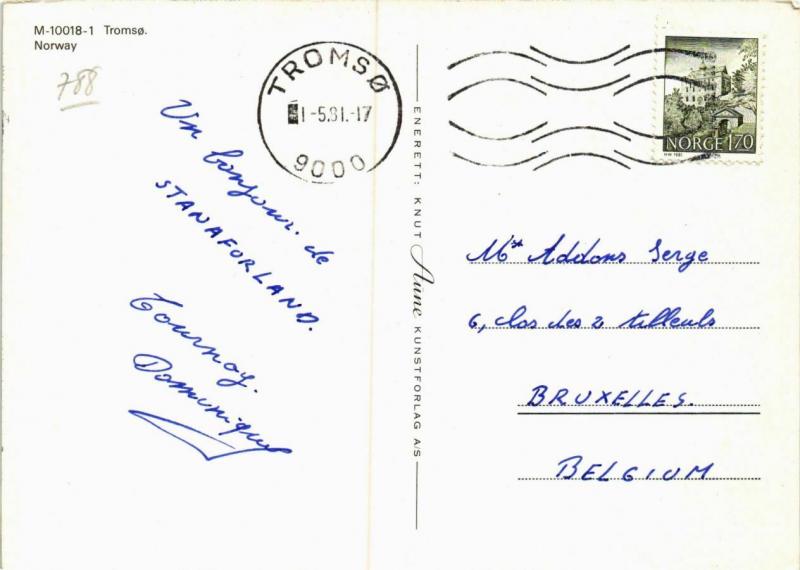 M-10018-1 Tromsø.
Norway
788
TROMSØ
1-5.81.-17
9000
NORGE 170
Un bonjour de
STANAFORLAND.
Tournay.
Dominique
ENERETT: KNUT Aune KUNSTFORLAG A/S
Mr Addons Serge
6, clos des 2 tilleuls
BRUXELLES.
BELGIUM